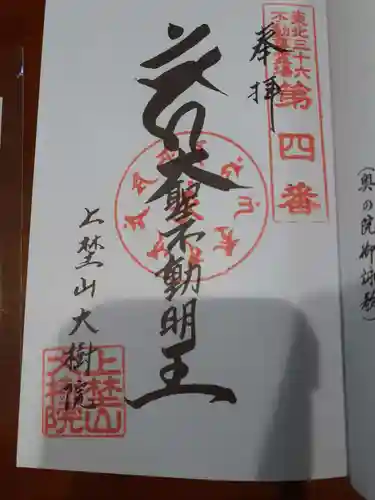 東北三十六
不動尊霊場
第四番
奉拝
大聖不動明王
上埜山大樹院
上埜山
大樹院
(奥の院御詠歌)